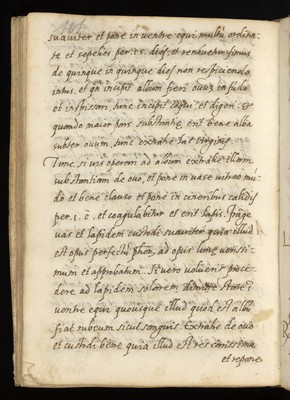 suaviter et pone in ventre equi multu ordina-
te et sepelies per dies, et renovetur simus
de quinque in quinque dies non resficiendo
intus, et qn incipit album fieri ovum in fudo
et inspissari, tunc incipit et digeri. Et
quando maior pars substantię erit bene alba
subter ovum, tunc extrahe lac virginis
Tunc si vis operari ad album extrahe illam
substantiam de ovo, et pone in vase vitreo mu-
do et bene clauso et pone in cineribus calidis
per .1. et coagulabitur et erit lapis. frãge
vas et lapidem custodi suaviter quia illud
est opus perfectu phm, ad opus lune verissi-
mum et approbatum. Si vero volueris proce-
dere ad lapidem solarem dimitte stare i
ventre equi quousque illud quod est albu
fiat rubeum sicut sanguis. Extrahe de ovo
et custodi bene quia illud est res carissima
et repone